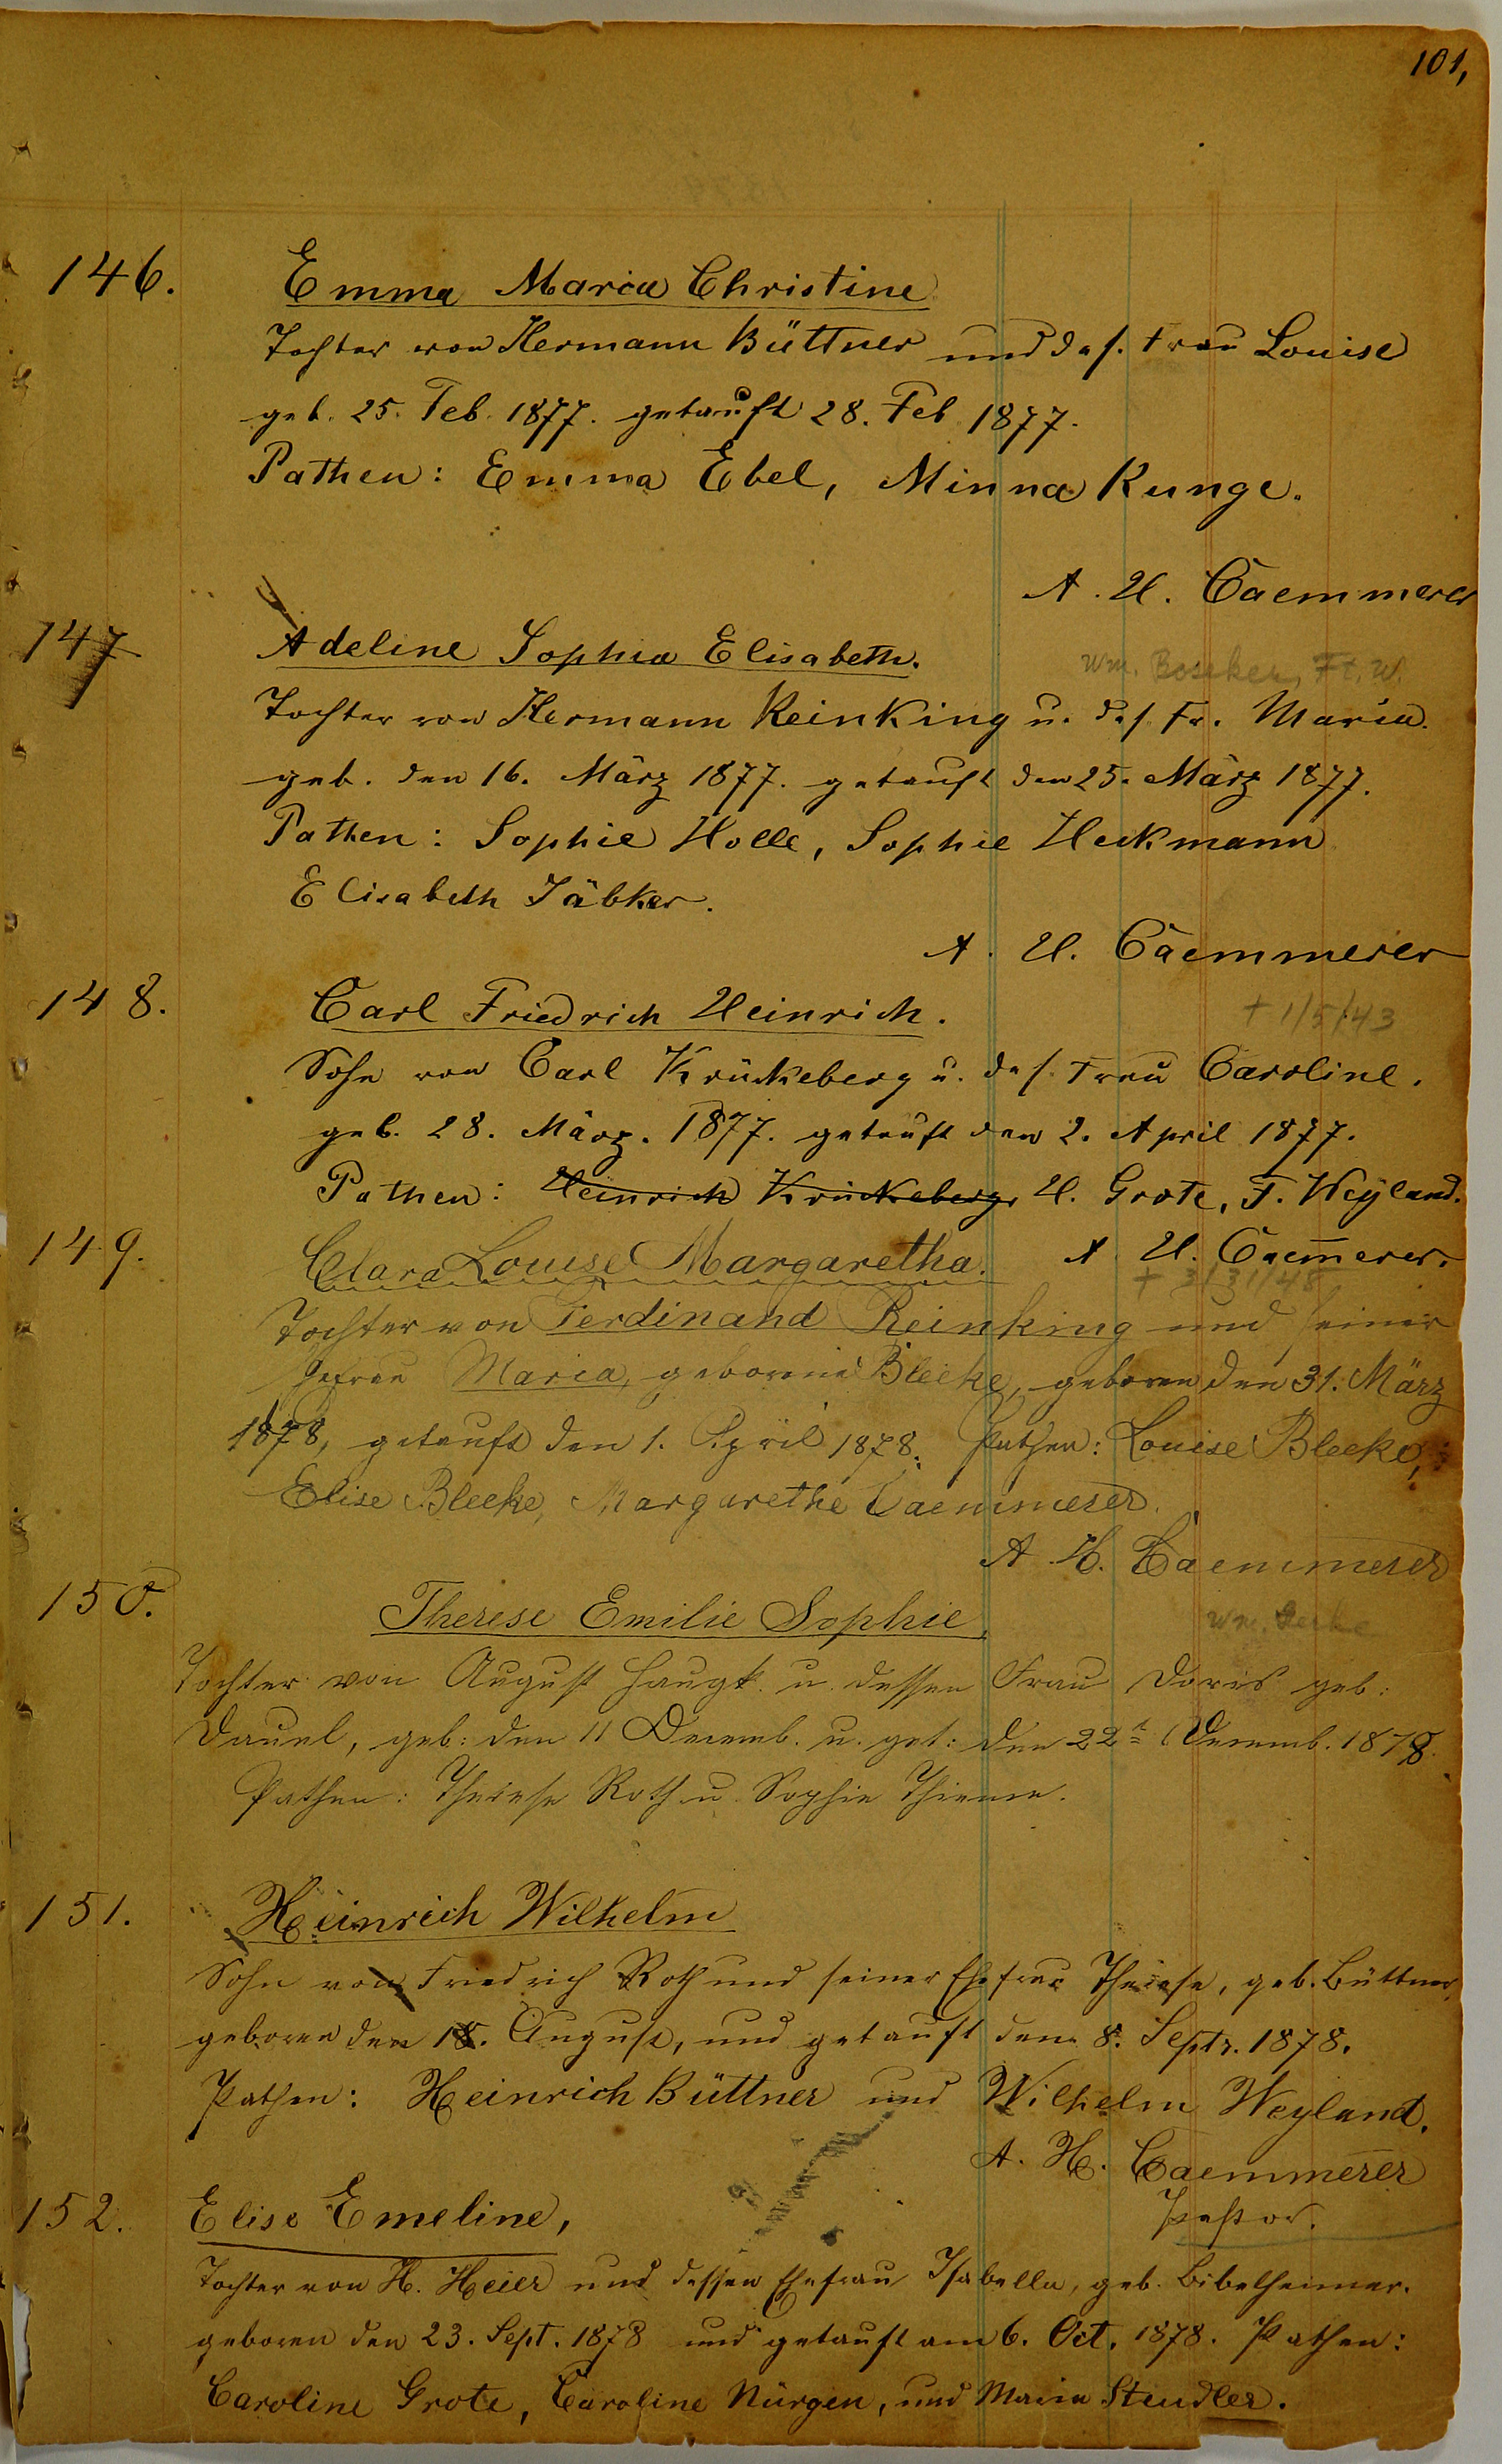 101,
146.
Emma Maria Christine
Tochter von Hermann Büttner und des. Frau Louise
geb. 25. Feb. 1877. getauft 28. Feb 1877.
Pathen: Emma Ebel, Minna Runge.
A. H. Caemmerer
147
Adeline Sophia Elisabeth.
Wm. Boseker, Ft. W.
Tochter von Hermann Reinking u. des. Fr. Maria.
geb. den 16. März 1877. getauft den 25. März 1877.
Pathen: Sophie Holle, Sophie Heckmann
Elisabeth Jäbker.
A. H. Caemmerer
148.
Carl Friedrich Heinrich.
+ 1/5/43
Sohn von Carl Krückeberg u. des. Frau Caroline.
geb. 28. März. 1877. getauft den 2. April 1877.
Pathen: Heinrich Krückeberg, H. Grote, F. Weyland.
A. H. Caem̅erer.
149.
Clara Louise Margaretha.
+ 3/31/48
Tochter von Ferdinand Reinking und seiner
Ehefrau Maria, geborene Bleeke, geboren den 31. März
1878, getauft den 1. April 1878. Pathen: Louise Bleeke,
Elise Bleeke, Margarethe Caemmerer.
A. H. Caemmerer
150.
Therese Emilie Sophie,
Wm. Gerke
Tochter von August Haugk u. dessen Frau Doris geb:
Dauel, geb: den 11 Decemb. u. get: den 22t Decemb. 1878.
Pathen: Therese Roth u. Sophie Thieme.
151.
Heinrich Wilhelm
Sohn von Friedrich Roth und seiner Ehefrau Therese, geb. Büttner,
geboren den 18. August, und getauft den 8. Septr. 1878.
Pathen: Heinrich Büttner und Wilhelm Weyland.
A. H. Caemmerer
Pastor.
152.
Elise Emeline,
Tochter von H. Heier und dessen Ehefrau Isabella, geb. Bibelheimer.
geboren den 23. Sept. 1878 und getauft am 6. Oct. 1878. Pathen:
Caroline Grote, Caroline Nürgen, und Maria Steudler.